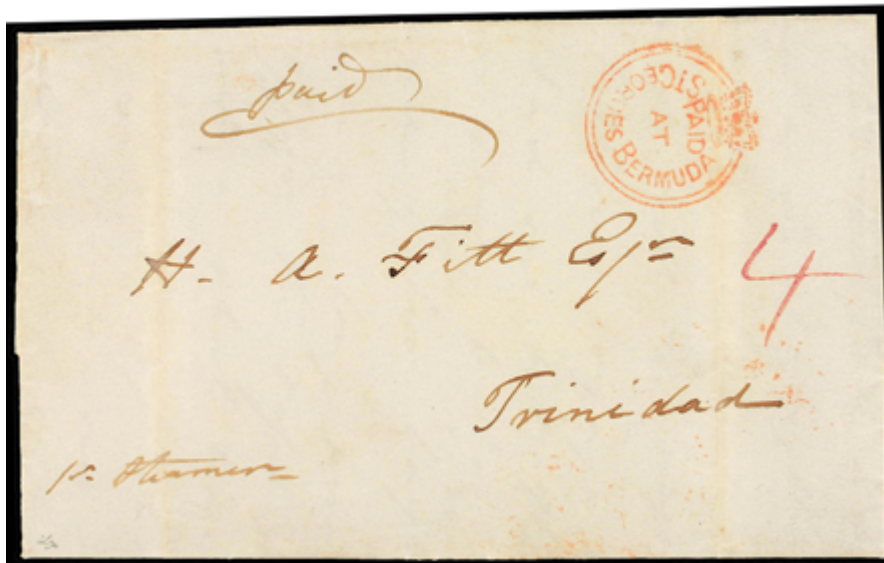 paid
PAID
AT
ST GEORGES BERMUDA
H. A. Fitt Esqr
4
Trinidad
pr. Steamer